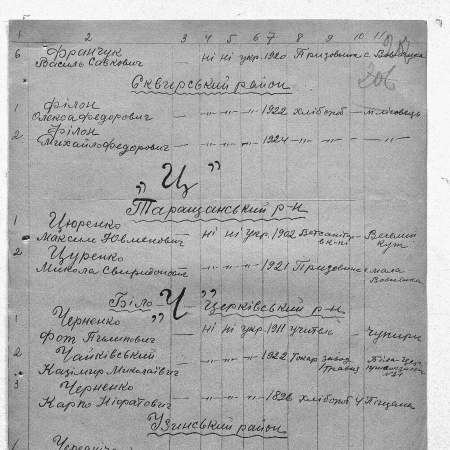 1 2 3 4 5 6 7 8 9 10 11
6 Франчук
Василь Савкович — ні ні укр. 1920 Призовник с
206
Сквирський район
1 Філон
Олекса Федорович — " " " 1922 хлібороб — м.
2 Філон
Михайло Федорович — " " " 1924 — " — — "
„Ц”
Таращанський р-н
1 Цюренко
Максим Ювменович — ні ні укр. 1902 — Веселий
кут
2 Цуренко
Микола Свиридонович — " " " 1921 Призовник с мала
„Ч”
Біло Церківський р-н
1 Черненко
Фот Пилипович — ні ні укр 1911 учитель — Чупири
2 Чайківський
Казімир Миколаївич — " " " 1922 Токар завод
3 Черненко
Карпо Ніфатович — " " " 1896 хлібороб Ч Піщана
Узинський район
1